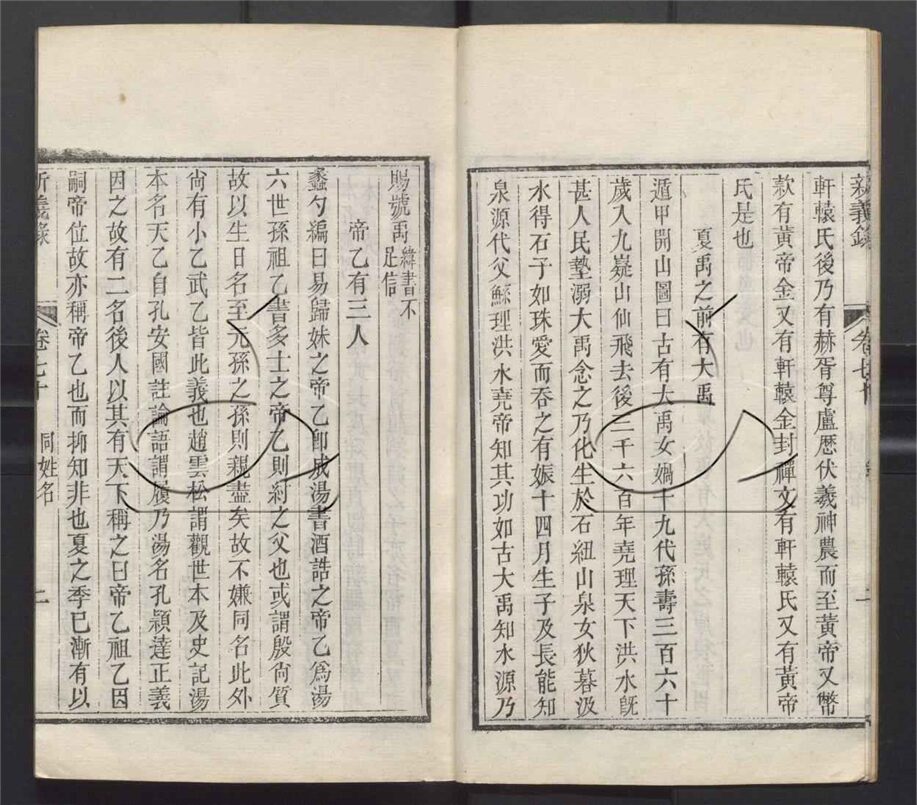 軒轅氏後乃有赫胥尊盧歷伏羲神農而至黃帝又幣
款有黃帝金又有軒轅金封禪文有軒轅氏又有黃帝
氏是也
夏禹之前有大禹
遁甲開山圖曰古有大禹女媧十九代孫壽三百六十
歲入九嶷山仙飛去後三千六百年堯理天下洪水旣
甚人民墊溺大禹念之乃化生於石紐山泉女狄暮汲
水得石子如珠愛而吞之有娠十四月生子及長能知
泉源代父鯀理洪水堯帝知其功如古大禹知水源乃
賜號禹緯書不足信
帝乙有三人
蠡勺編曰易歸妹之帝乙卽成湯書酒誥之帝乙爲湯
六世孫祖乙書多士之帝乙則紂之父也或謂殷尙質
故以生日名至元孫之孫則親盡矣故不嫌同名此外
尙有小乙武乙皆此義也趙雲松謂觀世本及史記湯
本名天乙自孔安國註論語謂履乃湯名孔穎達正義
因之故有二名後人以其有天下稱之曰帝乙祖乙因
嗣帝位故亦稱帝乙也而抑知非也夏之季已漸有以
卷七十
同姓名
二